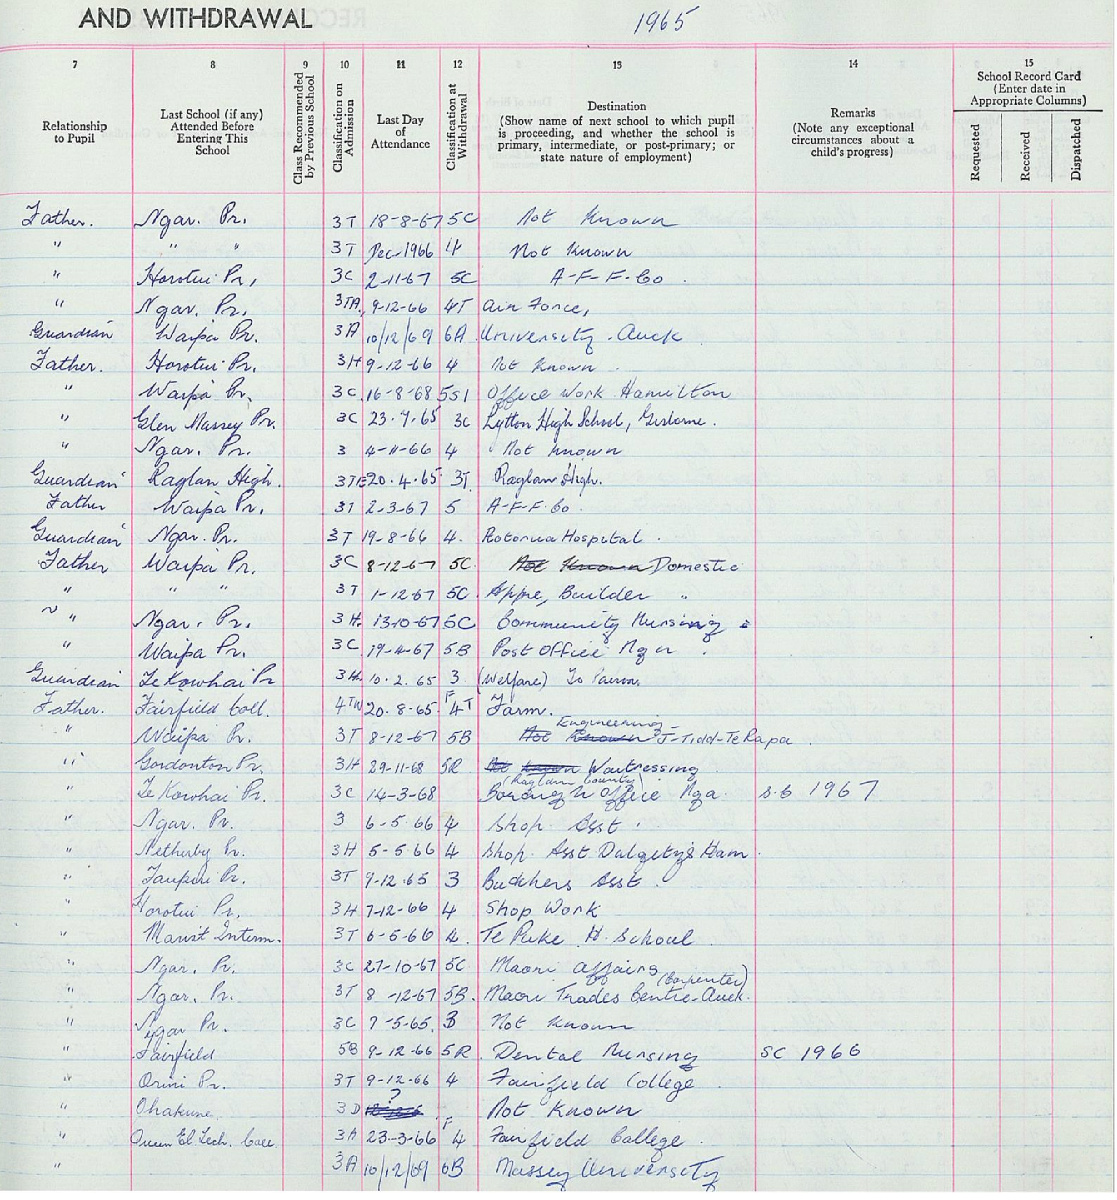 AND WITHDRAWAL 1965
7 8 9 10 11 12 13 14 15
Relationship to Pupil
Last School (if any) Attended Before Entering This School
Class Recommended by Previous School
Classification on Admission
Last Day of Attendance
Classification at Withdrawal
Destination (Show name of next school to which pupil is proceeding, and whether the school is primary, intermediate, or post-primary; or state nature of employment)
Remarks (Note any exceptional circumstances about a child's progress)
School Record Card (Enter date in Appropriate Columns)
Requested Received Dispatched
Father. Ngar. Pr. 3T 18-8-67 5C Not Known
" " " 3T Dec-1966 4 Not Known
" Horotiu Pr, 3C 2-11-67 5C A-F-F-Co.
" Ngar. Pr. 3TA 9-12-66 4T Air Force,
Guardian Waipa Pr. 3A 10/12/69 6A University - Auck
Father. Horotiu Pr. 3H 9-12-66 4 Not Known
" Waipa Pr. 3C 16-8-68 5S1 Office Work Hamilton
" Glen Massey Pr. 3C 23.7.65 3C Lytton High School, Gisborne.
" Ngar. Pr. 3 4-11-66 4 Not Known
Guardian Raglan High. 20.4.65 3T. Raglan High.
Father Waipa Pr. 3T 2-3-67 5 A-F-F-Co.
Guardian Ngar. Pr. 3T 19-8-66 4. Rotorua Hospital.
Father Waipa Pr. 3C 8-12-67 5C Not Known Domestic
" " " 3T 1-12-67 5C Appre, Builder "
" Ngar. Pr. 3H. 13-10-67 5C Community Nursing
" Waipa Pr. 3C 5B Post Office Nga
Guardian Te Kowhai Pr 3H 10.2.65 3 (Welfare)
Father. Fairfield Coll. 4TW 20.8.65 F4T Farm.
" Waipa Pr. 3T 8-12-67 5B Not Known Engineering J-Tidd-Te Rapa
" Gordonton Pr. 3H 29-11-68 5R Not Known Waitressing
" Te Kowhai Pr. 3C 14-3-68 (Raglan County) Borough Office Nga 1967
" Ngar. Pr. 3 6-5-66 4 Shop Asst.
" Netherby Pr. 3H 5-5-66 4 Shop Asst Dalgety's Ham.
" Taupiri Pr. 3T 9-12-65 3 Butchers Asst.
" Horotiu Pr. 3H 7-12-66 4 Shop Work
" Marist Interm. 3T 6-5-66 4. Te Puke H. School
" Ngar. Pr. 3C 27-10-67 5C Maori Affairs
" Ngar. Pr. 3T 8-12-67 5B. Maori Trades Centre-Auck. (Carpenter)
" Ngar Pr. 3C 7-5-65. 3 Not Known
" Fairfield 5B 9-12-66 5R. Dental Nursing SC 1966
" Orini Pr. 3T 9-12-66 4 Fairfield College
" Ohakune 3D ? Not Known
" Queen El. Tech. Coll. 3A 23-3-66 F4 Fairfield College.
" 3A 10/12/69 6B Massey University